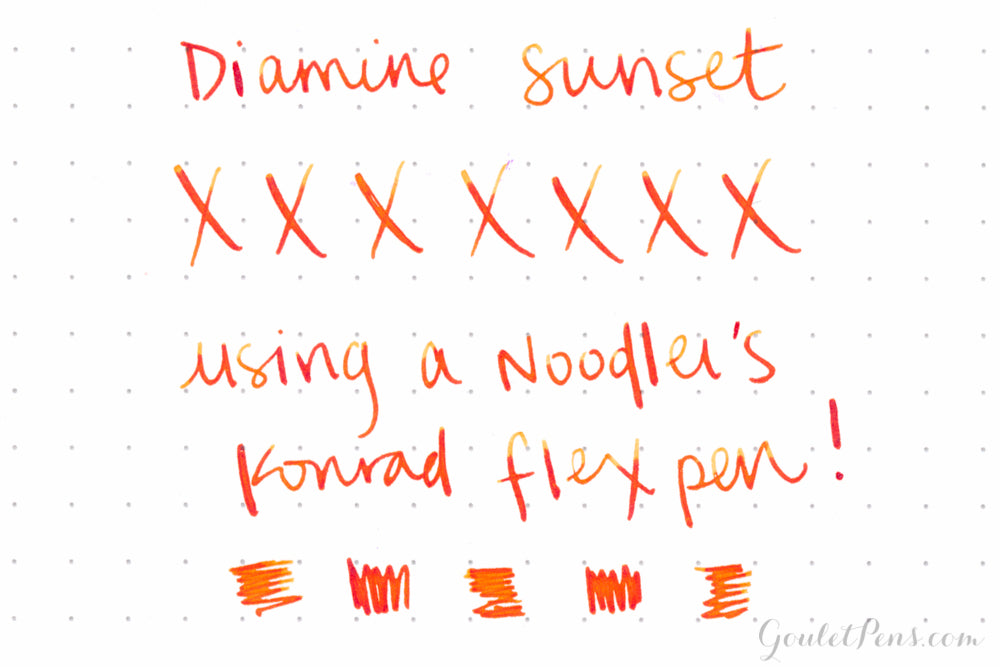 Diamine sunset
X X X X X X X
using a Noodler's
Konrad flex pen!
GouletPens.com